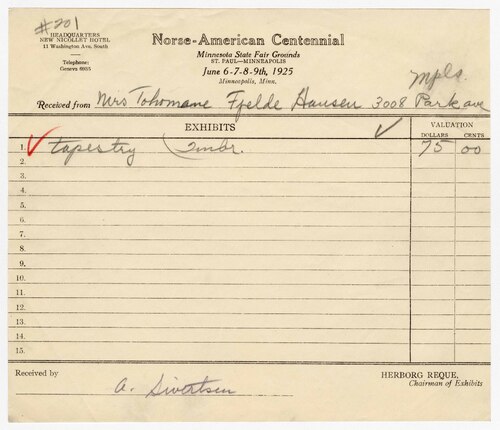 #201
HEADQUARTERS
NEW NICOLLET HOTEL
11 Washington Ave. South
Telephone:
Geneva 6855
Norse-American Centennial
Minnesota State Fair Grounds
ST. PAUL—MINNEAPOLIS
June 6-7-8-9th, 1925
Minneapolis, Minn.
Mpls.
Received from Mrs Fjelde Hansen 3008 Park ave
EXHIBITS ✓ VALUATION
DOLLARS CENTS
1. ✓ tapestry 75 00
2.
3.
4.
5.
6.
7.
8.
9.
10.
11.
12.
13.
14.
15.
Received by A. Sivertsen
HERBORG REQUE,
Chairman of Exhibits